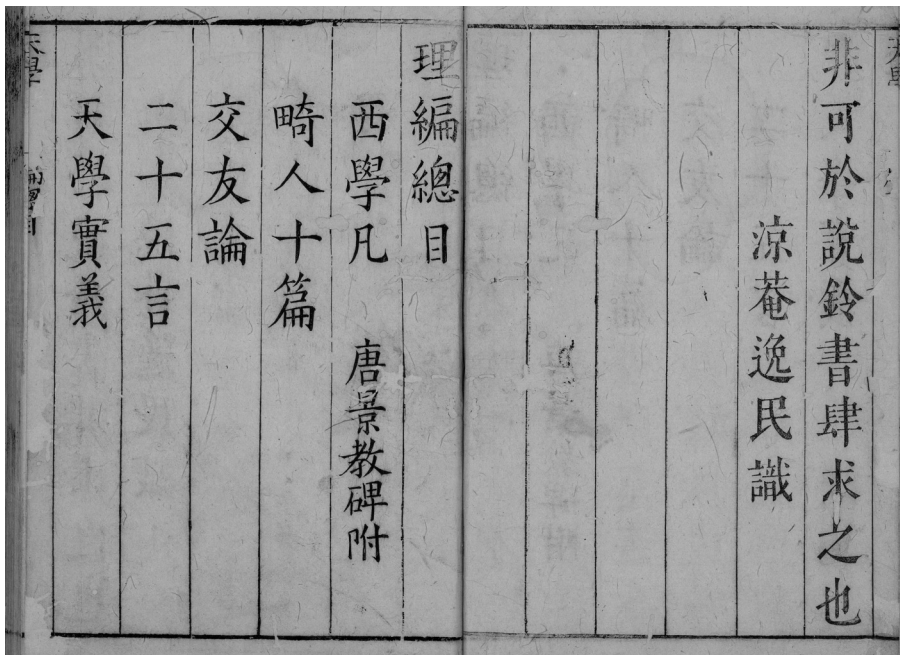 非可於說鈴書肆求之也
涼菴逸民識
理編總目
西學凡 唐景教碑附
畸人十篇
交友論
二十五言
天學實義